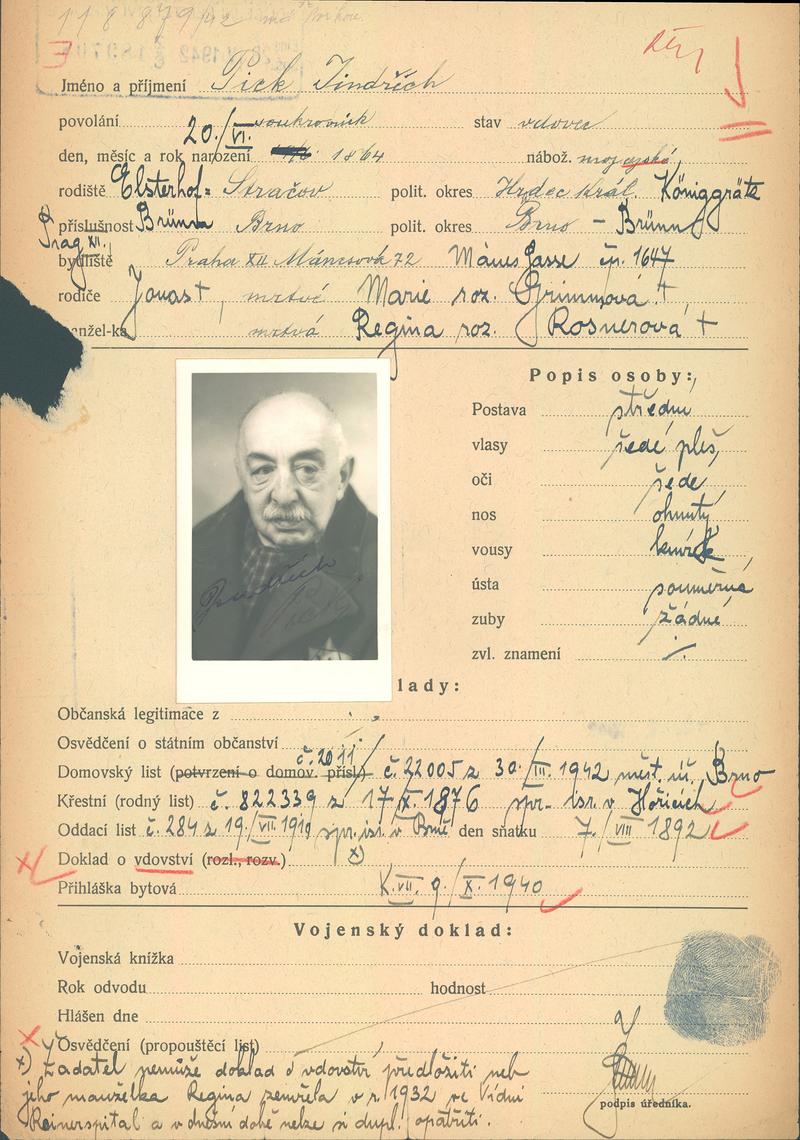 Jméno a příjmení Pick Jindřich
povolání soukromník stav vdovec
den, měsíc a rok narození 20./VI. 1864 nábož. mojžíšské,
rodiště Elsterhof= Stračov polit. okres Hradec Král. Königgrätz
příslušnost Brünn Brno polit. okres Brno - Brünn
Prag XII.
bydliště Praha XII Mánesova 72 Mánes Gasse čp. 1647
rodiče Jonas †, mrtvé Marie roz. Grimmová †,
manžel-ka mrtvá Regina roz. Rosnerová †
Popis osoby:
Postava střední
vlasy šedé pleš,
oči šedé
nos ohnutý
vousy knírek
ústa souměrná
zuby žádné
zvl. znamení ./.
Jindřich Pick
lady:
Občanská legitimace z
Osvědčení o státním občanství
č. 2011/
Domovský list (potvrzení o domov. přísl.) č. 22005 z 30./III. 1942 měst. úř. Brno
Křestní (rodný list) č. 822339 z 17/X. 1876 spr. isr. v Hořicích
Oddací list č. 284 z 19./VII. 1910 spr. isr. v Brně, den sňatku 7./VIII 1892
Doklad o vdovství (rozl., rozv.) x)
Přihláška bytová K. VII. 9./X. 1940
Vojenský doklad:
Vojenská knížka
Rok odvodu hodnost
Hlášen dne
Osvědčení (propouštěcí list)
x) Žadatel nemůže doklad o vdovství předložiti neb
jeho manželka Regina zemřela v r. 1932 ve Vídni
Reinerspital a v dnešní době nelze si dupl. opatřiti.
podpis úředníka.